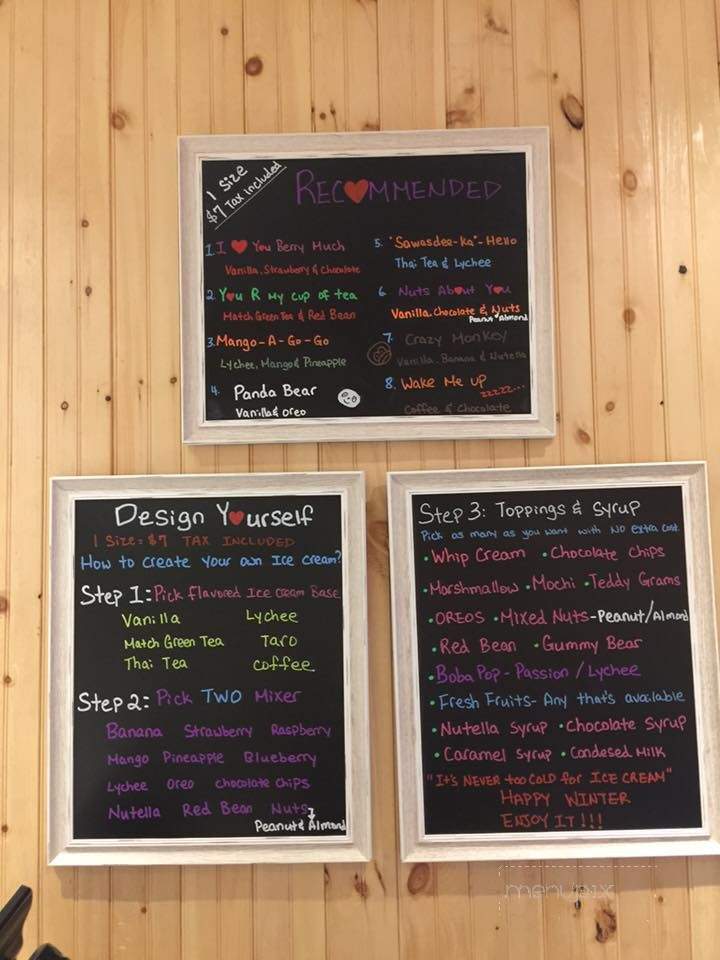 1 Size
$7 Tax Included
REC♥MMENDED
1. I ♥ You Berry Much
Vanilla, Strawberry & Chocolate
2. Y♥u R My cup of tea
Match Green Tea & Red Bean
3. Mango-A-Go-Go
Lychee, Mango & Pineapple
4. Panda Bear
Vanilla & Oreo
5. "Sawasdee-ka"-Hello
Thai Tea & Lychee
6 Nuts Ab♥ut Y♥u
Vanilla, Chocolate & Nuts
Peanut & Almond
7. Crazy Monkey
Vanilla, Banana & Nutella
8. Wake Me up
zzzzz...
Coffee & Chocolate
Design Y♥urself
1 Size = $7 TAX INCLUDED
How to create Your own Ice cream?
Step 1: Pick flavored Ice cream Base
Vanilla Lychee
Match Green Tea Taro
Thai Tea coffee
Step 2: Pick TWO Mixer
Banana Strawberry Raspberry
Mango Pineapple Blueberry
Lychee Oreo chocolate chips
Nutella Red Bean Nuts
Peanut & Almond
Step 3: Toppings & Syrup
Pick as many as you want with NO extra cost.
• Whip Cream • Chocolate Chips
• Marshmallow • Mochi • Teddy Grams
• OREOS • Mixed Nuts-Peanut/Almond
• Red Bean • Gummy Bear
• Boba Pop - Passion / Lychee
• Fresh Fruits - Any that's available
• Nutella Syrup • Chocolate Syrup
• Caramel Syrup • Condesed Milk
"It's NEVER too COLD for ICE CREAM"
HAPPY WINTER
ENJOY IT!!!
menupix